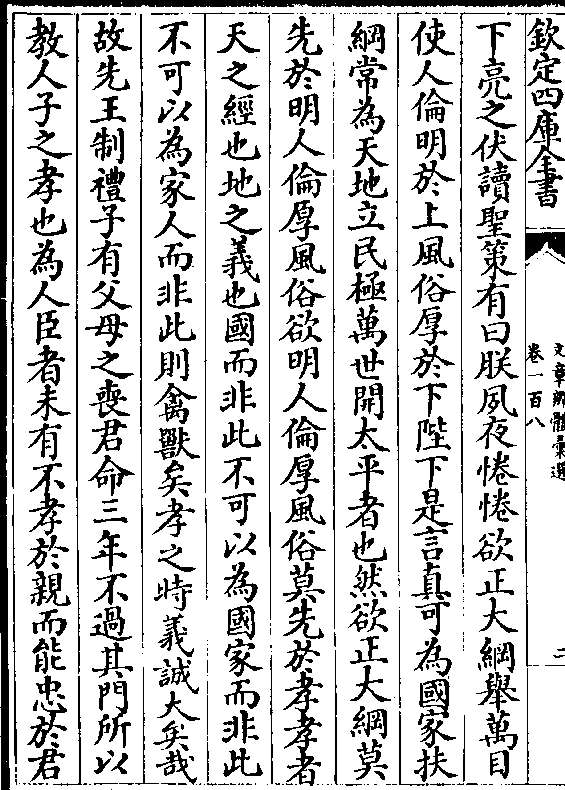 欽定四庫全書
文章辨體彙選
卷一百八
二
下亮之伏讀聖策有曰朕夙夜惓惓欲正大綱舉萬目
使人倫明於上風俗厚於下陛下是言真可為國家扶
綱常為天地立民極萬世開太平者也然欲正大綱莫
先於明人倫厚風俗欲明人倫厚風俗莫先於孝孝者
天之經也地之義也國而非此不可以為國家而非此
不可以為家人而非此則禽獸矣孝之時義誠大矣哉
故先王制禮子有父母之喪君命三年不過其門所以
教人子之孝也為人臣者未有不孝於親而能忠於君